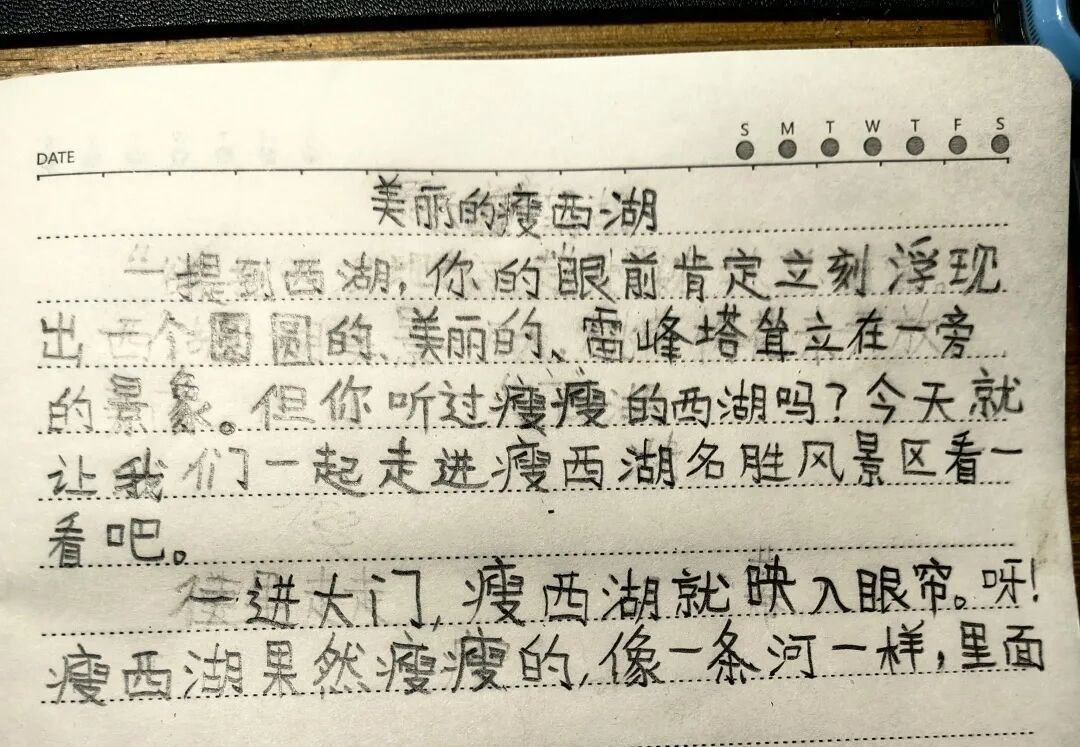 DATE
S M T W T F S
美丽的瘦西湖
一提到西湖，你的眼前肯定立刻浮现
出一个圆圆的、美丽的、雷峰塔耸立在一旁
的景象。但你听过瘦瘦的西湖吗？今天就
让我们一起走进瘦西湖名胜风景区看一
看吧。
一进大门，瘦西湖就映入眼帘。呀！
瘦西湖果然瘦瘦的，像一条河一样，里面